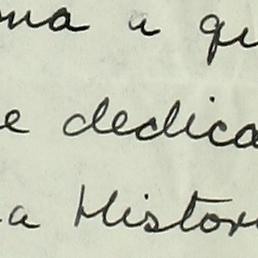 ona a qu
e dedica
a Histor